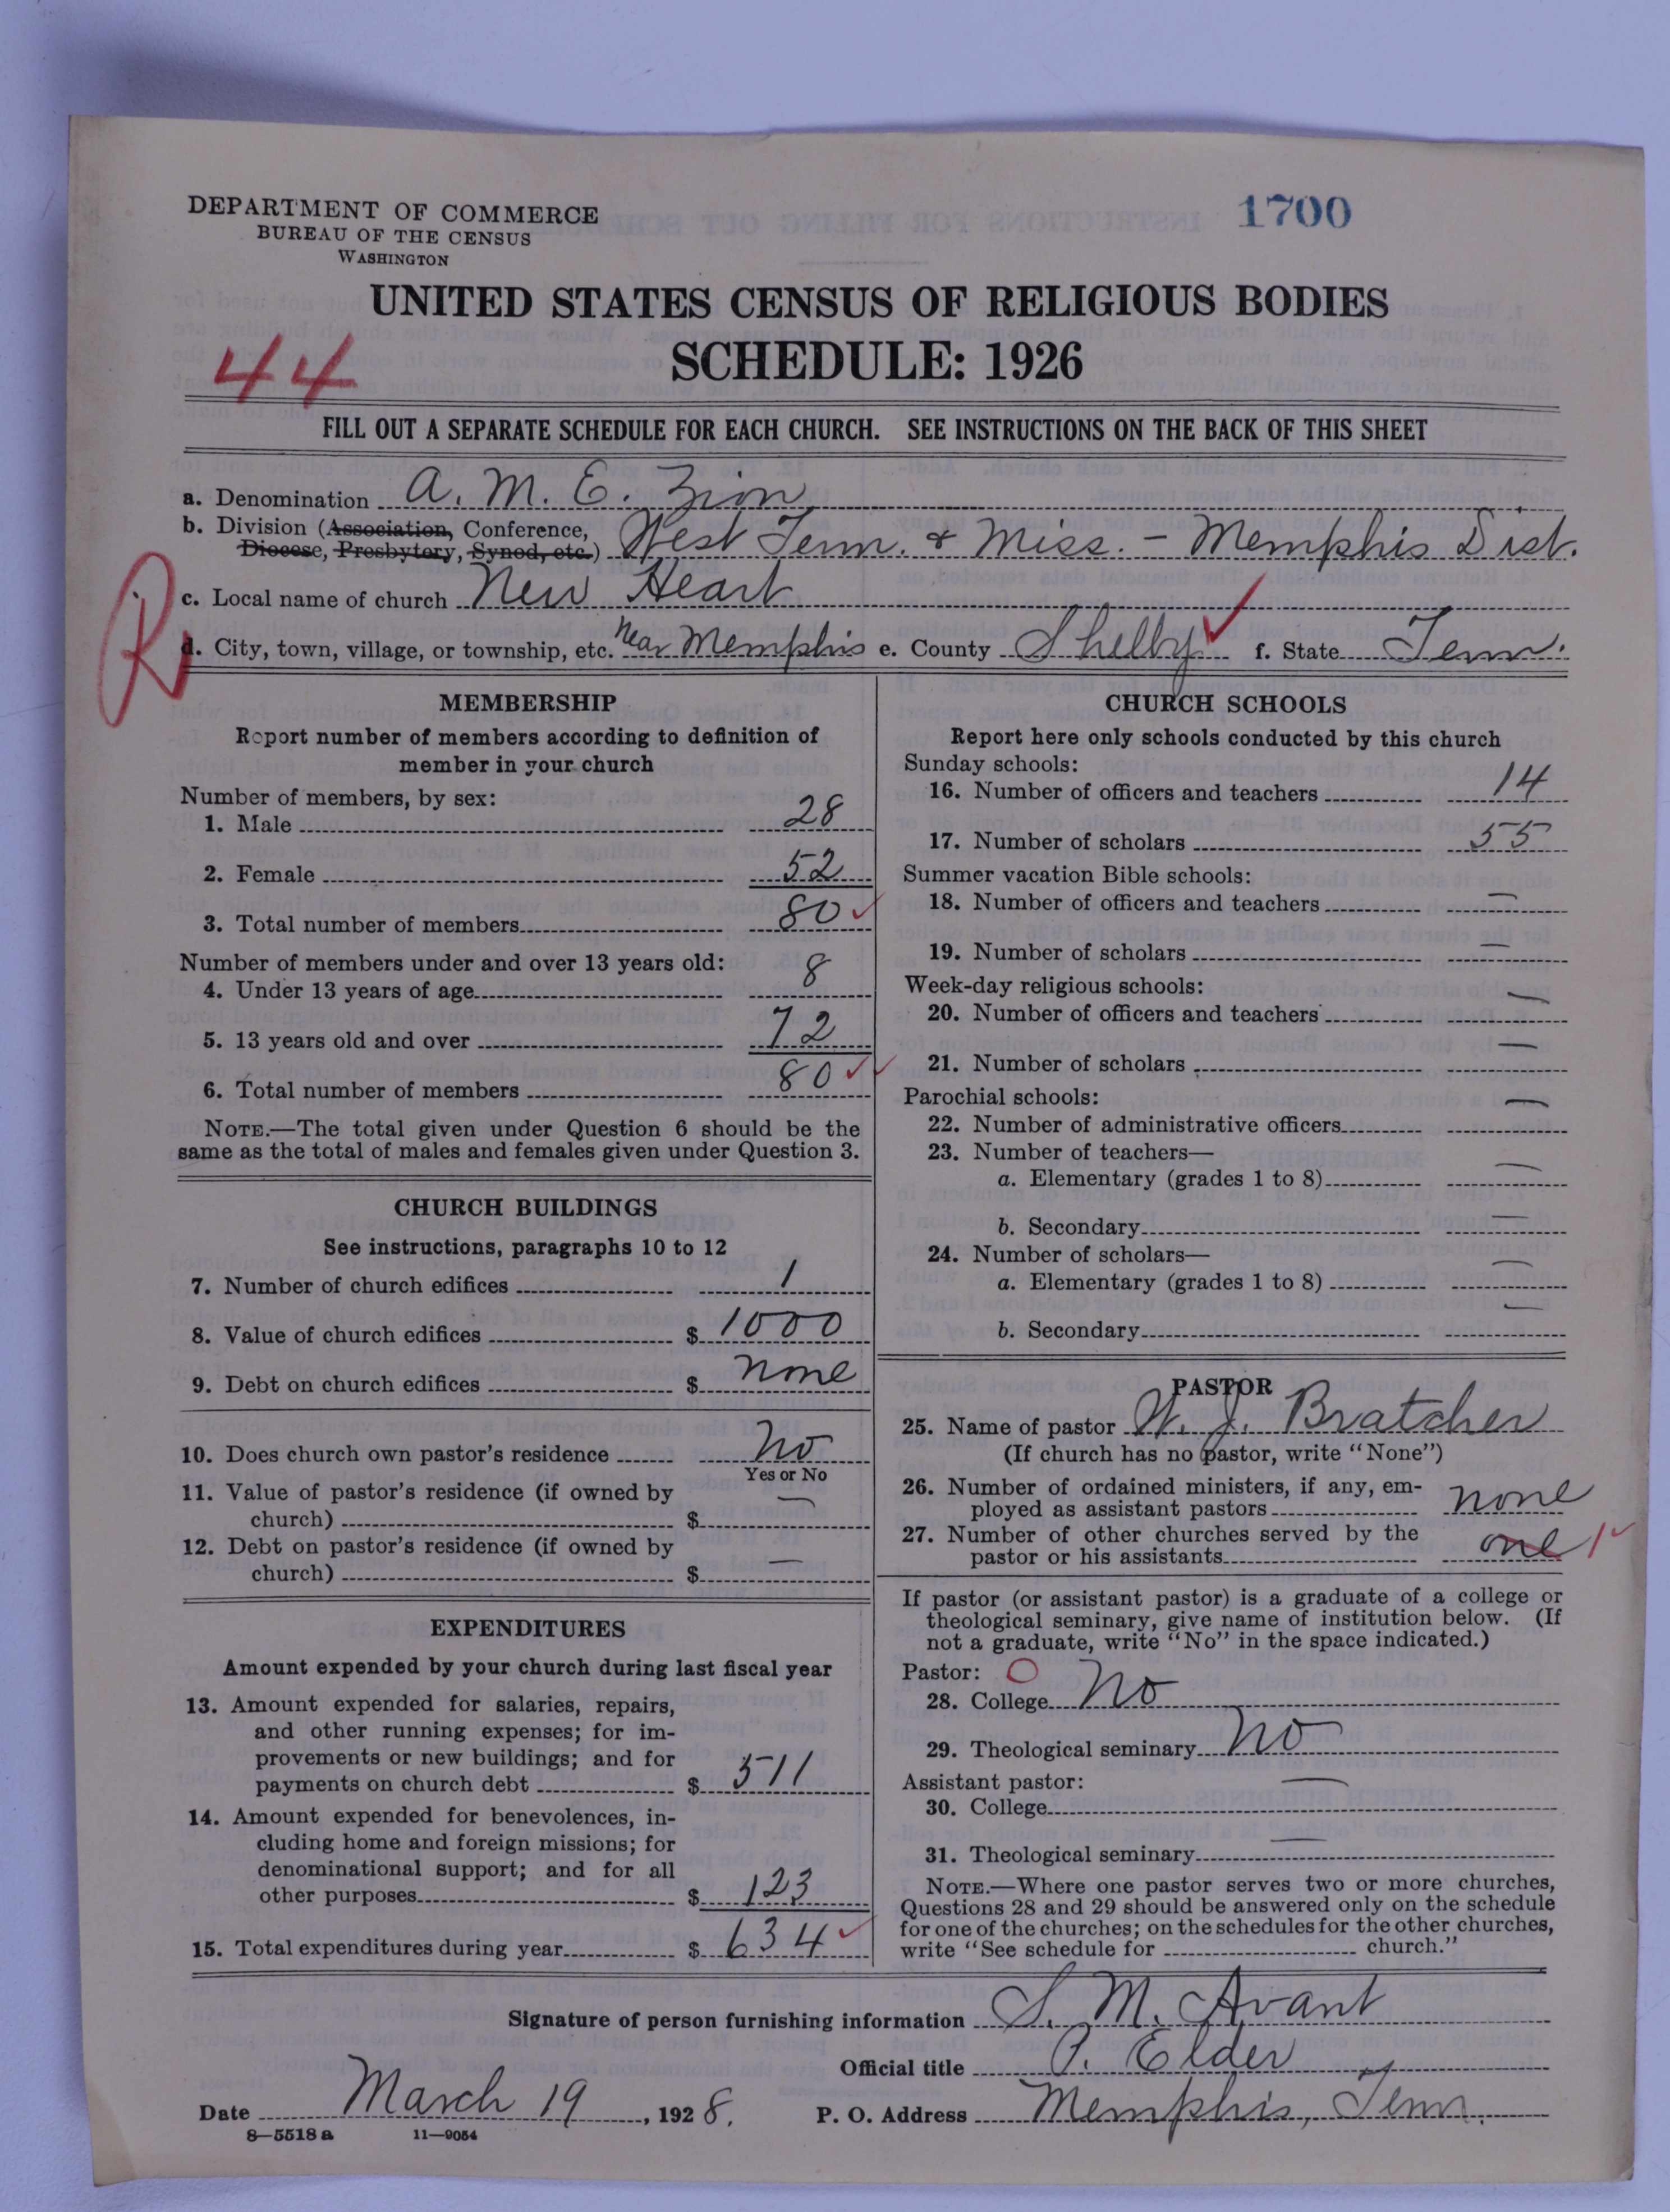 DEPARTMENT OF COMMERCE
BUREAU OF THE CENSUS
WASHINGTON
1700
UNITED STATES CENSUS OF RELIGIOUS BODIES
SCHEDULE: 1926
44
FILL OUT A SEPARATE SCHEDULE FOR EACH CHURCH. SEE INSTRUCTIONS ON THE BACK OF THIS SHEET
a. Denomination A. M. E. Zion
b. Division (Association, Conference,
Diocese, Presbytery, Synod, etc.) West Tenn. & Miss. - Memphis Dist.
R
c. Local name of church New Heart
d. City, town, village, or township, etc. Near Memphis e. County Shelby f. State Tenn.
MEMBERSHIP
Report number of members according to definition of
member in your church
Number of members, by sex:
1. Male 28
2. Female 52
3. Total number of members 80
Number of members under and over 13 years old:
4. Under 13 years of age 8
5. 13 years old and over 72
6. Total number of members 80
NOTE.—The total given under Question 6 should be the
same as the total of males and females given under Question 3.
CHURCH BUILDINGS
See instructions, paragraphs 10 to 12
7. Number of church edifices 1
8. Value of church edifices $ 1000
9. Debt on church edifices $ none
10. Does church own pastor's residence No
Yes or No
11. Value of pastor's residence (if owned by
church) $ —
12. Debt on pastor's residence (if owned by
church) $ —
EXPENDITURES
Amount expended by your church during last fiscal year
13. Amount expended for salaries, repairs,
and other running expenses; for im-
provements or new buildings; and for
payments on church debt $ 511
14. Amount expended for benevolences, in-
cluding home and foreign missions; for
denominational support; and for all
other purposes $ 123
15. Total expenditures during year $ 634
CHURCH SCHOOLS
Report here only schools conducted by this church
Sunday schools:
16. Number of officers and teachers 14
17. Number of scholars 55
Summer vacation Bible schools:
18. Number of officers and teachers —
19. Number of scholars —
Week-day religious schools:
20. Number of officers and teachers —
21. Number of scholars —
Parochial schools:
22. Number of administrative officers —
23. Number of teachers—
a. Elementary (grades 1 to 8) —
b. Secondary —
24. Number of scholars—
a. Elementary (grades 1 to 8) —
b. Secondary —
PASTOR
25. Name of pastor W. J. Bratcher
(If church has no pastor, write "None")
26. Number of ordained ministers, if any, em-
ployed as assistant pastors none
27. Number of other churches served by the
pastor or his assistants one 1
If pastor (or assistant pastor) is a graduate of a college or
theological seminary, give name of institution below. (If
not a graduate, write "No" in the space indicated.)
Pastor: O
28. College No
29. Theological seminary No
Assistant pastor:
30. College —
31. Theological seminary —
NOTE.—Where one pastor serves two or more churches,
Questions 28 and 29 should be answered only on the schedule
for one of the churches; on the schedules for the other churches,
write "See schedule for church."
Signature of person furnishing information S. M. Avant
Official title P. Elder
Date March 19, 1928. P. O. Address Memphis, Tenn.
8—5518 a 11—9054